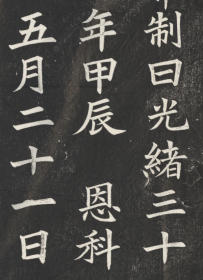 制曰光緒三十
年甲辰 恩科
五月二十一日